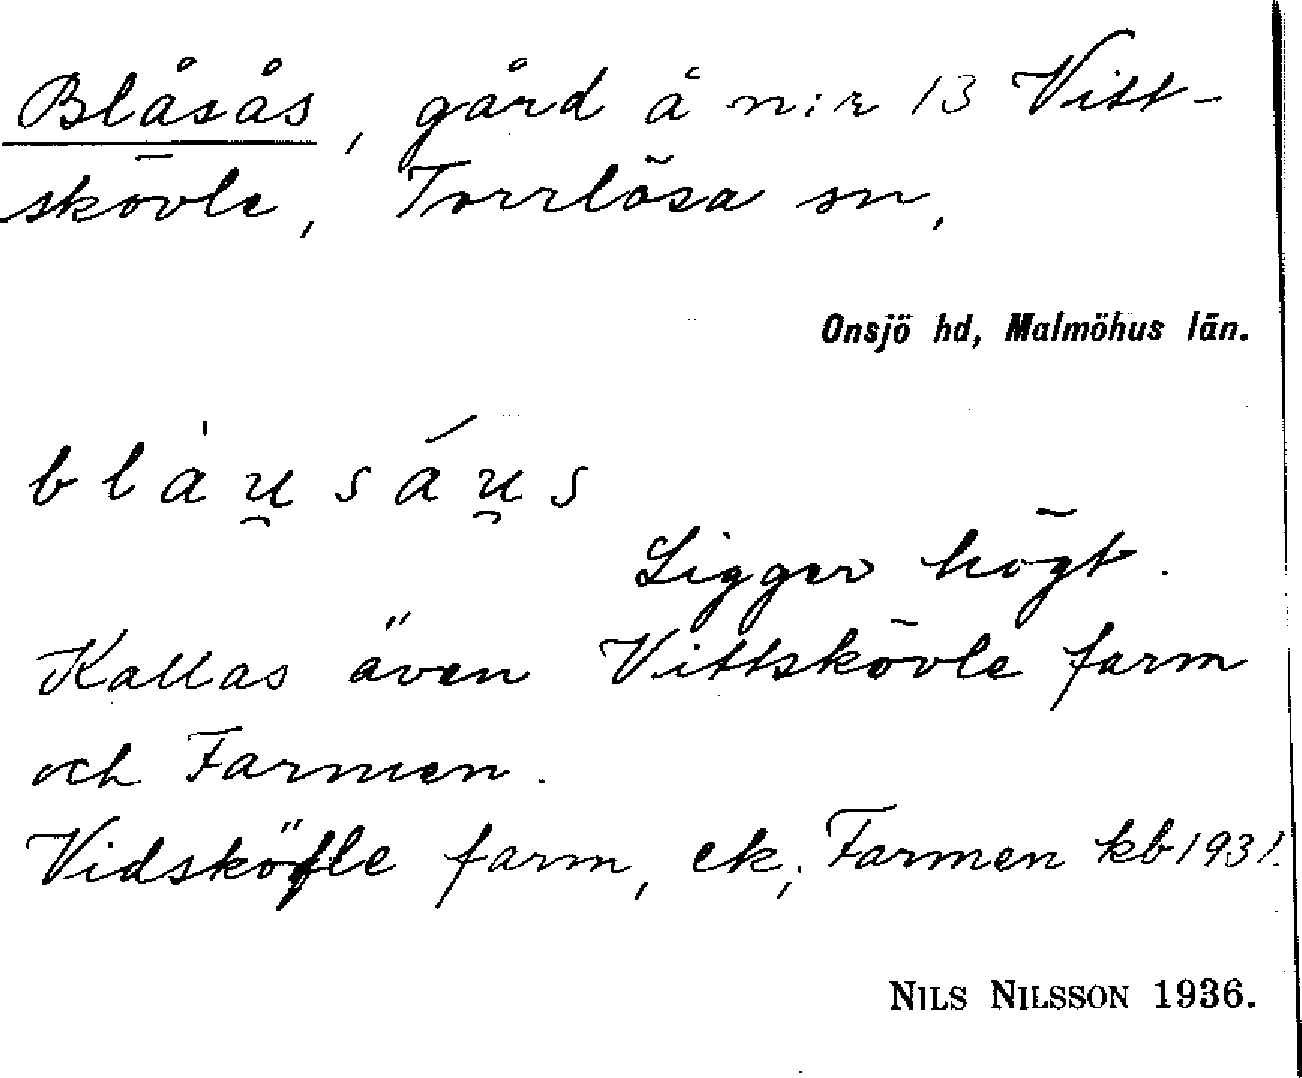 Blåsås, gård å n:r 13 Vitt-
skövle, Torrlösa sn,
Onsjö hd, Malmöhus län.
blàu̯sáu̯s
Ligger högt.
Kallas även Vittskövle farm
och Farmen.
Vidsköfle farm, ek; Farmen kb 1931.
NILS NILSSON 1936.